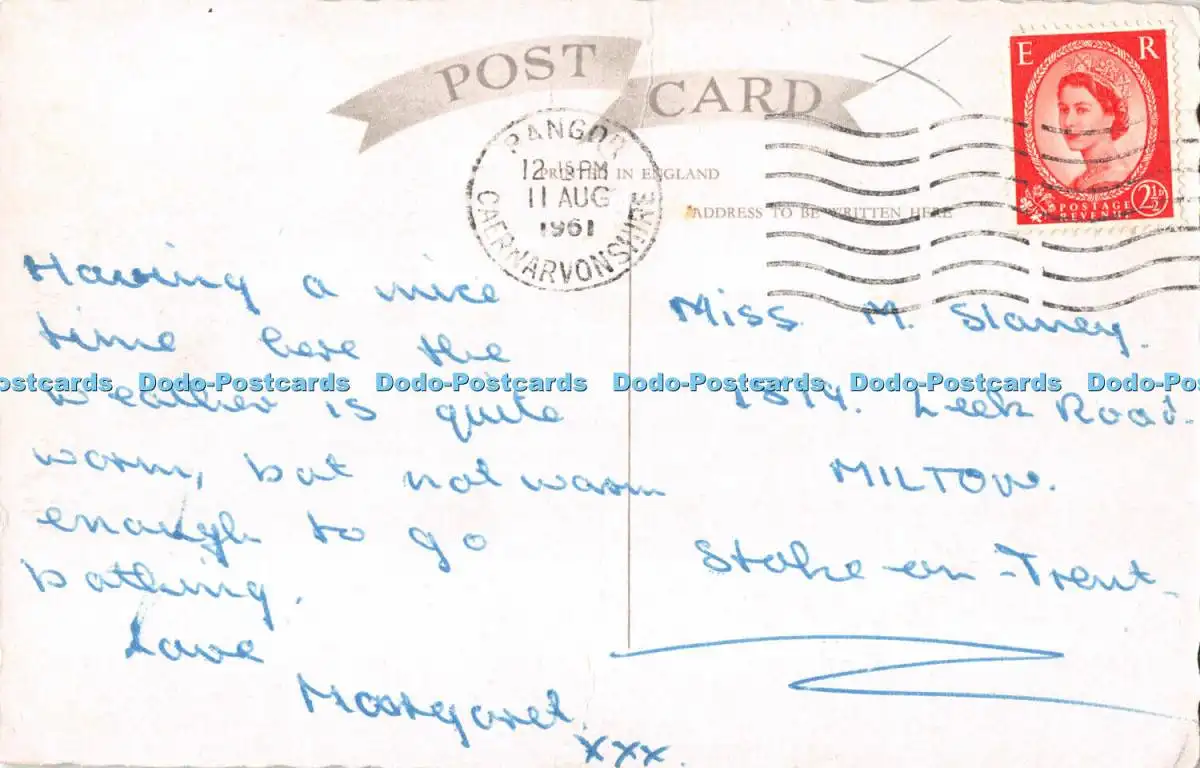 POST CARD
E R
BANGOR
12 15 PM
11 AUG
1961
CAERNARVONSHIRE
PRINTED IN ENGLAND
ADDRESS TO BE WRITTEN HERE
POSTAGE
REVENUE
2½D
Having a nice
time here the
weather is quite
warm, but not warm
enough to go
bathing.
Love
Margaret.
xxx.
Miss M. Slaney.
Leek Road.
MILTON.
Stoke-on-Trent.
ostcards Dodo-Postcards Dodo-Postcards Dodo-Postcards Dodo-Postcards Dodo-Post